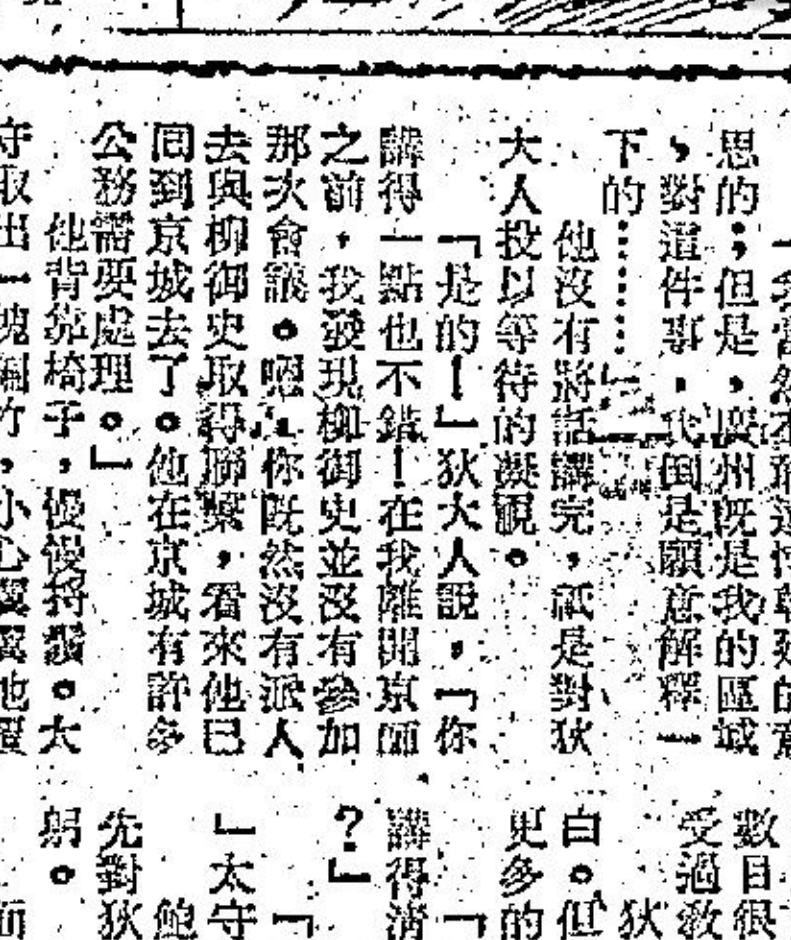 思的；但是，廣州既是我的區域
，對這件事，我倒是願意解釋一
下的……」
他沒有將話講完，祇是對狄
大人投以等待的凝視。
「是的！」狄大人說，「你
講得一點也不錯！在我離開京師
之前，我發現柳御史並沒有參加
那次會議。嗯，你既然沒有派人
去與柳御史取得聯繫，看來他已
回到京城去了。他在京城有許多
公務需要處理。」
他背靠椅子，慢慢捋鬚。太
守取出一塊
竹，小心翼翼地
數目很
受過教
狄
白。但
更多的
「
講得清
？」
「
」太守
鮑
先對狄
躬。